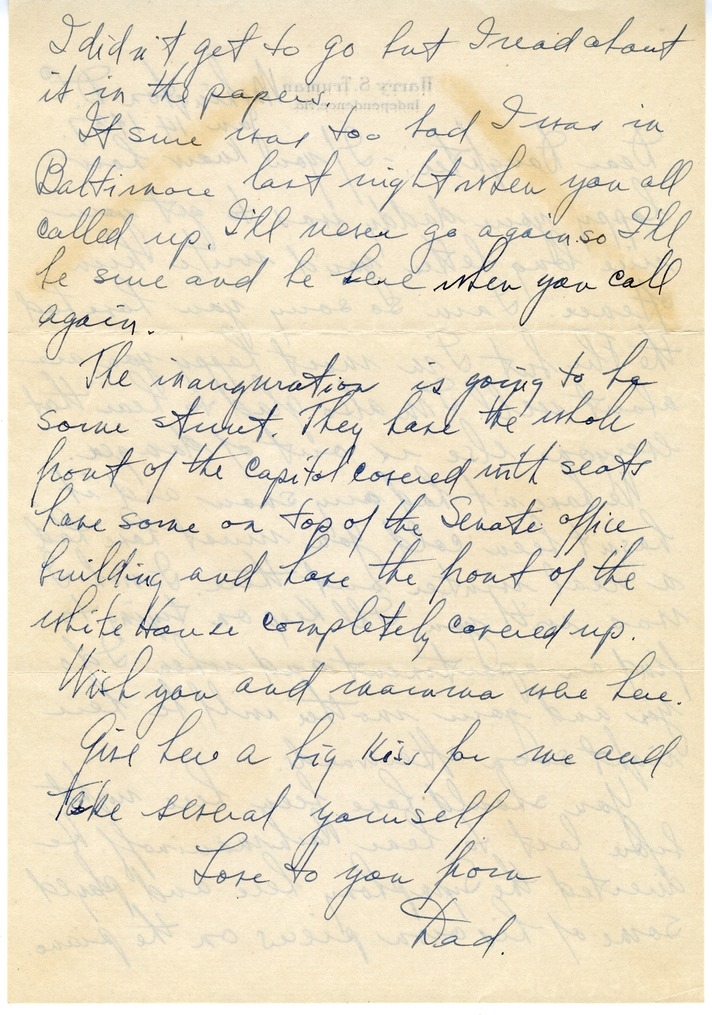 I didn't get to go but I read about
it in the papers.
It sure was too bad I was in
Baltimore last night when you all
called up. I'll never go again so I'll
be sure and be here when you call
again.
The inauguration is going to be
some stunt. They have the whole
front of the Capitol covered with seats
have some on top of the Senate office
building and have the front of the
White House completely covered up.
Wish you and mamma were here.
Give her a big kiss for me and
take several yourself
Love to you from
Dad.